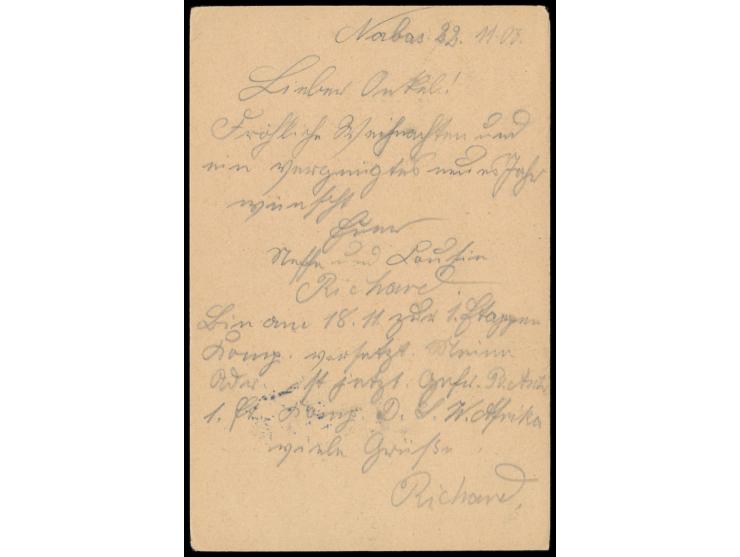 Nabas. 22. 11.07.
Lieber Onkel!
Fröhliche Weihnachten und
ein vergnügtes neues Jahr
wünscht
Euer
Neffe und Cousin
Richard.
Bin am 18.11 zur 1. Etappen
Komp. versetzt. Meine
Adr. ist jetzt: Gefr.
1. Et. Komp. D. S. W. Afrika
viele Grüße
Richard.